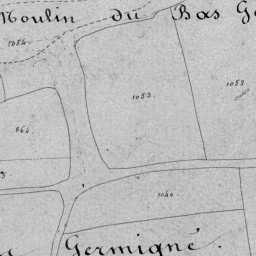 Moulin du Bas Ge
1054.
1053.
1052
964.
3.
1040.
Germigné.